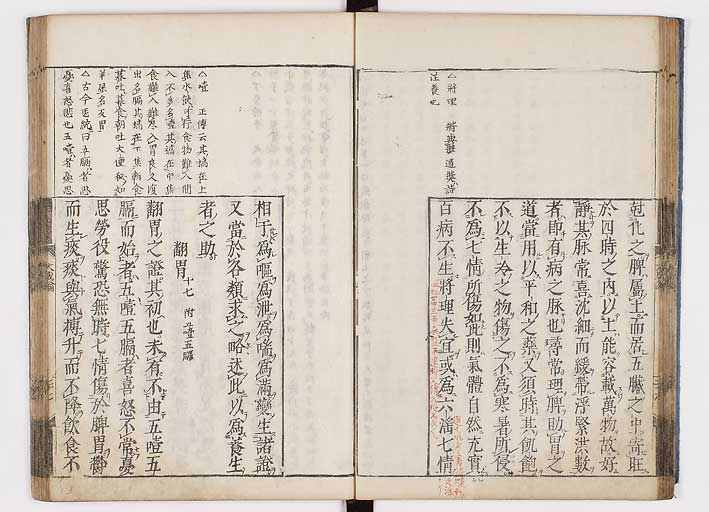 尅化之脾屬土而居五臟之中寄旺
於四時之內以土能容載萬物故好
靜其脉常喜沈細而緩帶浮緊洪數
者即有病之脉也尋常理脾助胃之
道當用以平和之藥又須時其飢飽
不以生冷之物傷之不為寒暑所侵
不為七情所傷如此則氣體自然充實
百病不生將理失宜或為六淫七情
△將理
注養也
相干為嘔為泄為喘為滿變生諸證
又當於各類求之略述此以為養生
者之助
翻胃十七 附五噎五膈
翻胃之證其初也未有不由五噎五
膈而始者五噎五膈者喜怒不常憂
思勞役驚恐無時七情傷於脾胃欝
而生痰痰與氣搏升而不降飲食不
△噎 正傳云其槁在上
焦水飲可行食物難入間
入不多名噎其槁在中焦
食難入難入胃良久復
出名膈其槁在下焦朝食
暮吐暮食朝吐大便秘如
羊屎名反胃
△古今医統曰五膈者思
憂喜怒悲也五噎者憂思